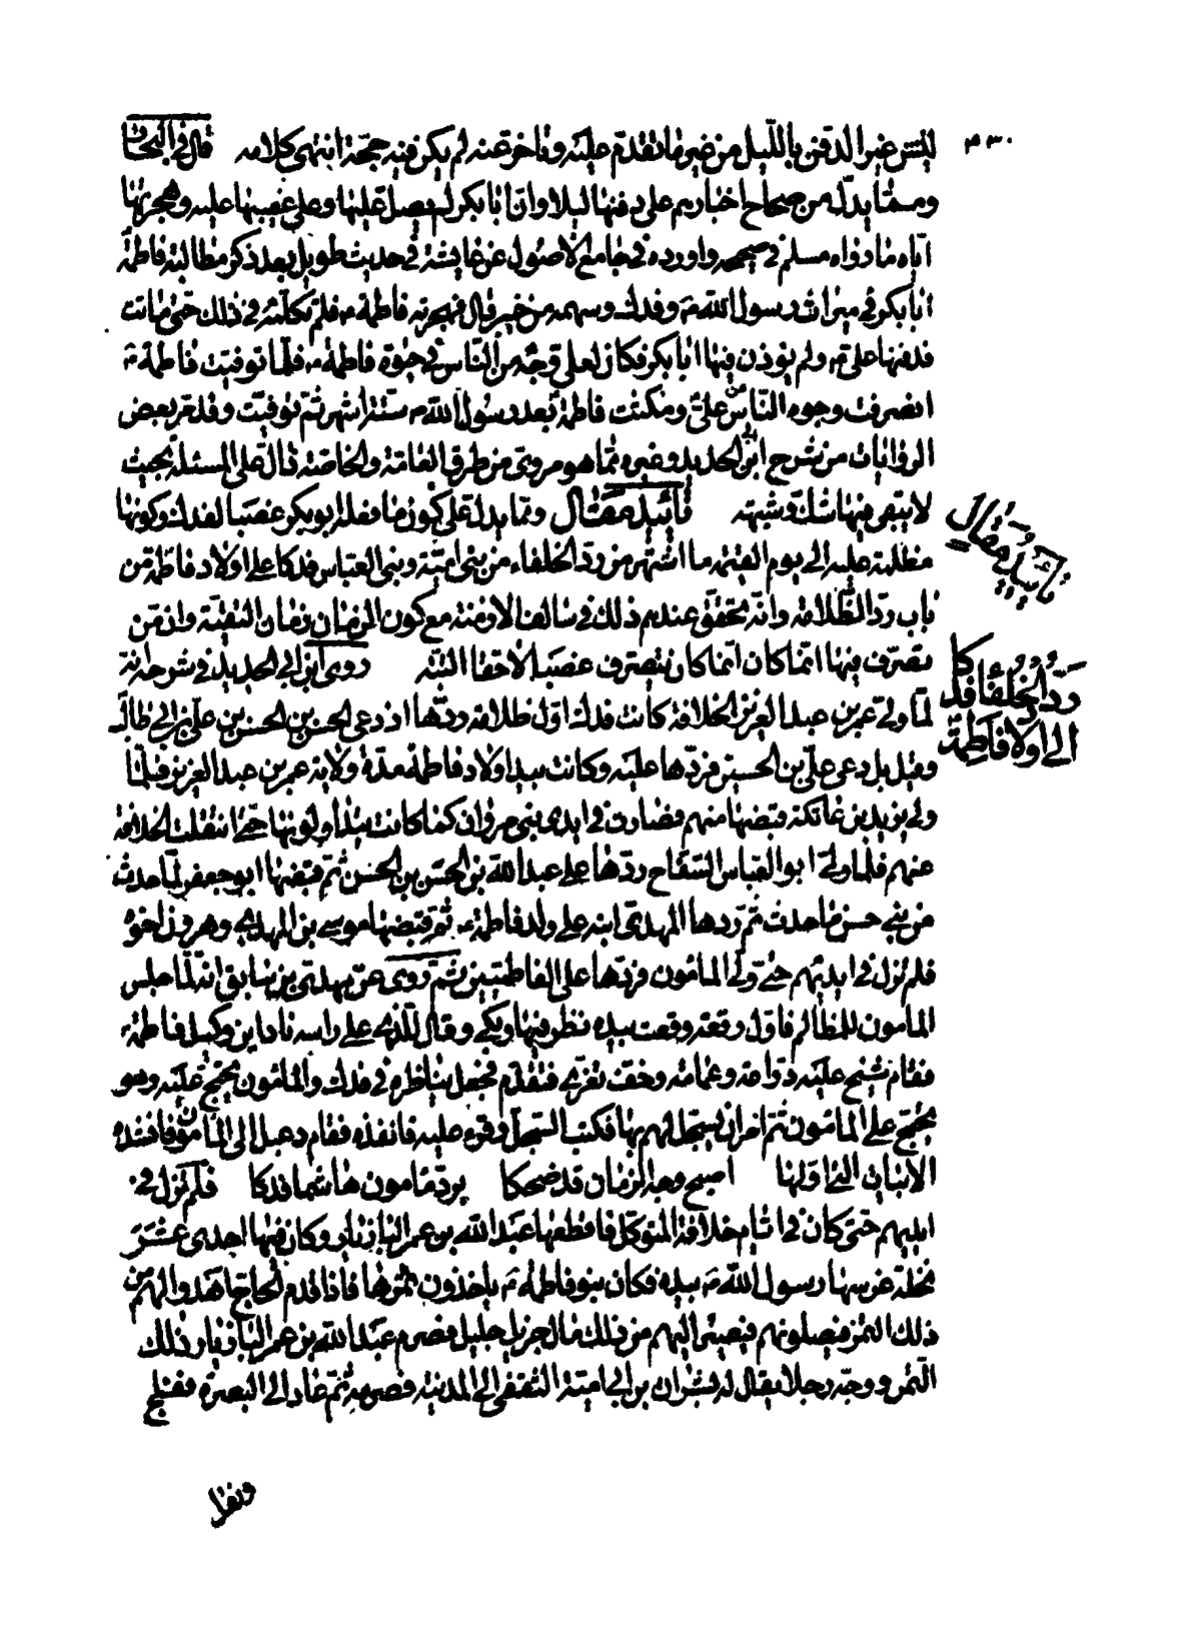 ٤٣٠
ليس غير الدفن بالليل من غير ما تقدم عليه وتأخر عنه لم يكن فيه حجة انتهى كلامه قال في البحار
ومما يدل من صحاح اخبارهم على دفنها ليلا وان ابا بكر لم يصل عليها وعلى غضبها عليه وهجرتها
اياه ما رواه مسلم في صحيحه واورده في جامع الاصول عن عايشة في حديث طويل بعد ذكر مطالبة فاطمة
ابا بكر في ميراث رسول الله ص وفدك وسهمه من خيبر قال فهجرته فاطمة ع فلم تكلمه في ذلك حتى ماتت
فدفنها علي ع ولم يؤذن بها ابا بكر فكان لعلي وجه من الناس في حيوة فاطمة ع فلما توفيت فاطمة ع
انصرفت وجوه الناس عن علي ومكثت فاطمة بعد رسول الله ص ستة اشهر ثم توفيت وقد مر بعض
الروايات من شرح ابن ابي الحديد وغيره مما هو مروي من طرق العامة والخاصة دال على المسئلة بحيث
لا يبقى فيها شك وشبهة تأييد مقال ومما يدل على كون ما فعله ابو بكر غصبا لفدك وكونها
مظلمة عليه الى يوم القيمة ما اشتهر من رد الخلفاء من بني امية وبني العباس فدكا على اولاد فاطمة من
باب رد الظلامة وانه محقق عندهم ذلك في سالف الازمنة مع كون الزمان زمان التقية وان من
تصرف فيها انما كان يتصرف غصبا لاحقا البتة روى ابن ابي الحديد في شرحه انه
لما ولي عمر بن عبد العزيز الخلافة كانت فدك اول ظلامة ردها اذ دعى الحسن بن الحسن بن علي بن ابي طالب
وقيل بل دعى علي بن الحسين فردها عليه وكانت بيد اولاد فاطمة مدة ولاية عمر بن عبد العزيز فلما
ولي يزيد بن عاتكة قبضها منهم فصارت في ايدي بني مروان كما كانت يتداولونها حتى انتقلت الخلافة
عنهم فلما ولي ابو العباس السفاح ردها على عبد الله بن الحسن بن الحسن ثم قبضها ابو جعفر لما حدث
من بني حسن ما حدث ثم ردها المهدي ابنه على ولد فاطمة ع ثم قبضها موسى بن المهدي وهرون اخوه
فلم تزل في ايديهم حتى ولي المامون فردها على الفاطميين ثم روى عن مهدي بن سابق انه لما جلس
المامون للمظالم فاول رقعة وقعت بيده نظر فيها وبكى وقال للذي على راسه ناد اين وكيل فاطمة ع
فقام شيخ عليه دراعة وعمامة وخف تعزى فتقدم فجعل يناظره في فدك والمامون يحتج عليه وهو
يحتج على المامون ثم امر ان يسجل لهم بها فكتب السجل وقرء عليه فانفذه فقام دعبل الى المامون فانشده
الابيات التي اولها اصبح وجه الزمان قد ضحكا برد مامون هاشما فدكا فلم تزل في
ايديهم حتى كان في ايام خلافة المتوكل فاقطعها عبد الله بن عمر البازيار وكان فيها احدى عشرة
نخلة غرسها رسول الله ص بيده فكان بنو فاطمة ع ياخذون ثمرها فاذا قدم الحاج اهدوا لهم من
ذلك التمر فيصلونهم فيصير اليهم من ذلك مال جزيل جليل فصرم عبد الله بن عمر البازيار ذلك
التمر ووجه رجلا يقال له بشران بن ابي امية الثقفي الى المدينة فصرمه ثم عاد الى البصرة ففلج
تأييد مقال
رد الخلفاء فدكا
الى اولاد فاطمة
ونقل